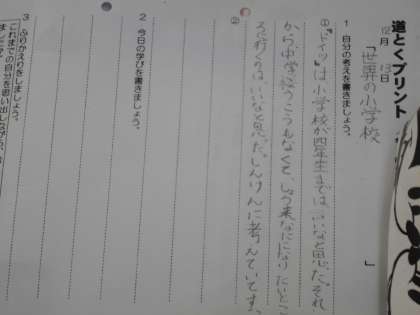 道とくプリント
12月13日
「世界の小学校　」
1 自分の考えを書きましょう。
①「ドイツ」は小学校が四年生までは、いいなと思た。それ
から中学校うこうもなくて、しょう来なにになりたいとこ
ろに行くのは、いいなと思た。しんけんに考えています。
②
2 今日の学びを書きましょう。
3 ふりかえりをしましょう。
これまでの自分を思い出しながら、